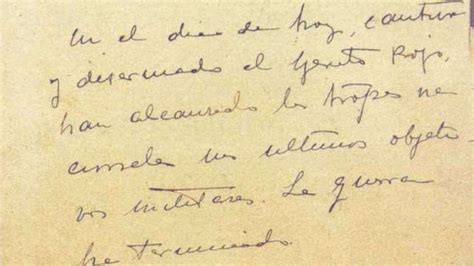 En el dia de hoy, cautivo
y desarmado el Ejercito Rojo,
han alcanzado las tropas na
cionales sus ultimos objeti
vos militares. La guerra
ha terminado.